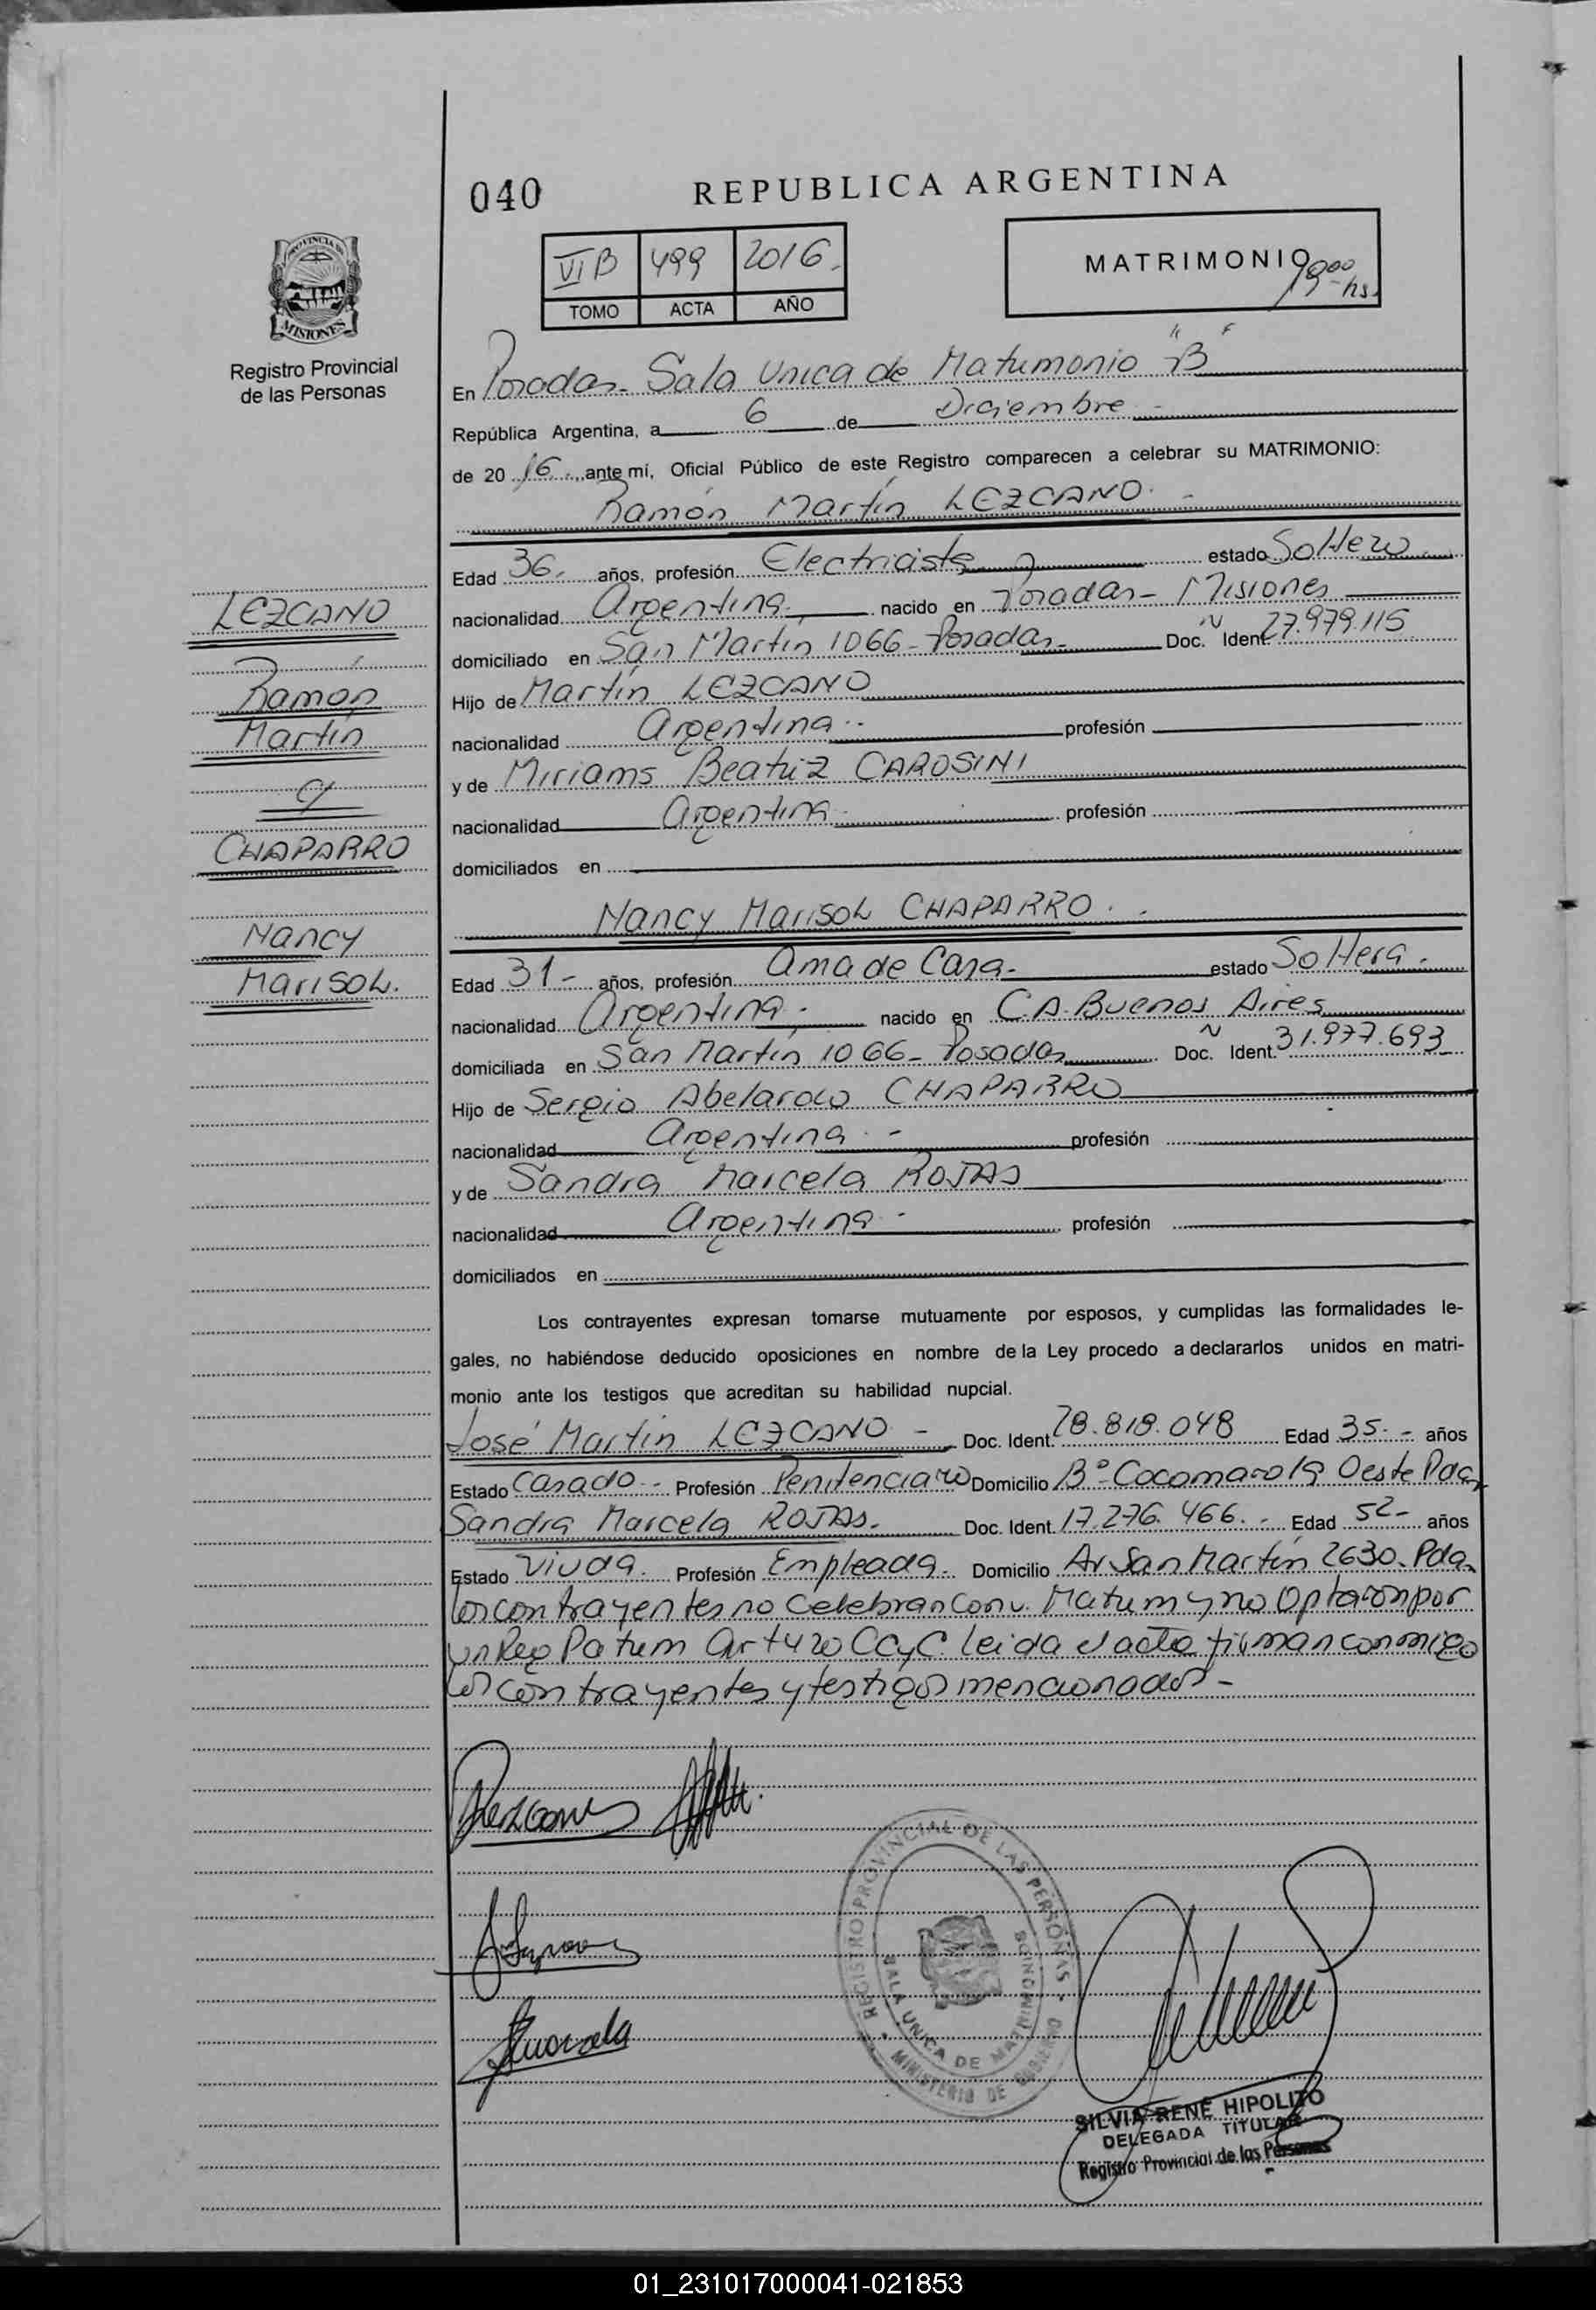 040
REPUBLICA ARGENTINA
PROVINCIA DE
MISIONES
Registro Provincial
de las Personas
VI B 499 2016.
TOMO ACTA AÑO
MATRIMONIO
19:00 hs.
En Posadas- Sala Unica de Matrimonio "B"
República Argentina, a 6 de Diciembre -
de 20 16 ante mí, Oficial Público de este Registro comparecen a celebrar su MATRIMONIO:
Ramón Martín LEZCANO. -
Edad 36. años, profesión Electricista estado Soltero
nacionalidad Argentina. nacido en Posadas- Misiones
domiciliado en San Martín 1066- Posadas- Doc. Ident. 27.979.115
Hijo de Martín LEZCANO
nacionalidad Argentina -- profesión
y de Miriams Beatriz CAROSINI
nacionalidad Argentina- profesión
domiciliados en
LEZCANO
Ramón
Martín
c/
CHAPARRO
Nancy
Marisol.
Nancy Marisol CHAPARRO. -
Edad 31- años, profesión Ama de Casa- estado Soltera.
nacionalidad Argentina- nacido en C.A. Buenos Aires
domiciliada en San Martín 1066- Posadas Doc. Ident. 31.977.693
Hijo de Sergio Abelardo CHAPARRO
nacionalidad Argentina - profesión
y de Sandra Marcela ROJAS
nacionalidad Argentina- profesión
domiciliados en
Los contrayentes expresan tomarse mutuamente por esposos, y cumplidas las formalidades le-
gales, no habiéndose deducido oposiciones en nombre de la Ley procedo a declararlos unidos en matri-
monio ante los testigos que acreditan su habilidad nupcial.
José Martín LEZCANO - Doc. Ident. 28.818.048 Edad 35.- años
Estado Casado-- Profesión Penitenciario Domicilio B° Cocomarola Oeste Pdas
Sandra Marcela ROJAS. Doc. Ident. 17.276.466.- Edad 52- años
Estado Viuda. Profesión Empleada. Domicilio Av San Martín 2630. Pdas
Los contrayentes no Celebran Conv. Matrim y no Optaron por
un Reg Patrim Art 420 CCyC. leida el acta firman conmigo
los contrayentes y testigos mencionados-
REGISTRO PROVINCIAL DE LAS PERSONAS
SALA UNICA DE MATRIMONIOS
MINISTERIO DE GOBIERNO
SILVIA RENE HIPOLITO
DELEGADA TITULAR
Registro Provincial de las Personas
01_231017000041-021853